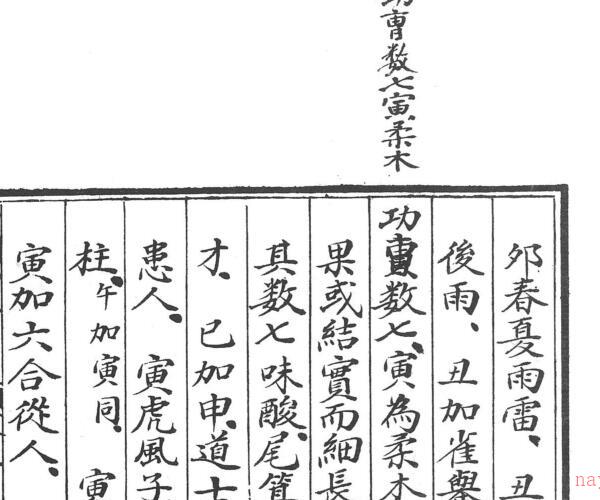 功曹数七寅柔木
夘春夏雨雷、丑
後雨、丑加雀舉
功曹数七、寅為柔木
果或結實而細長
其数七味酸、尾箕
才、巳加申、道士
患人。寅虎風子
柱、午加寅同、寅
寅加六合從人、
na